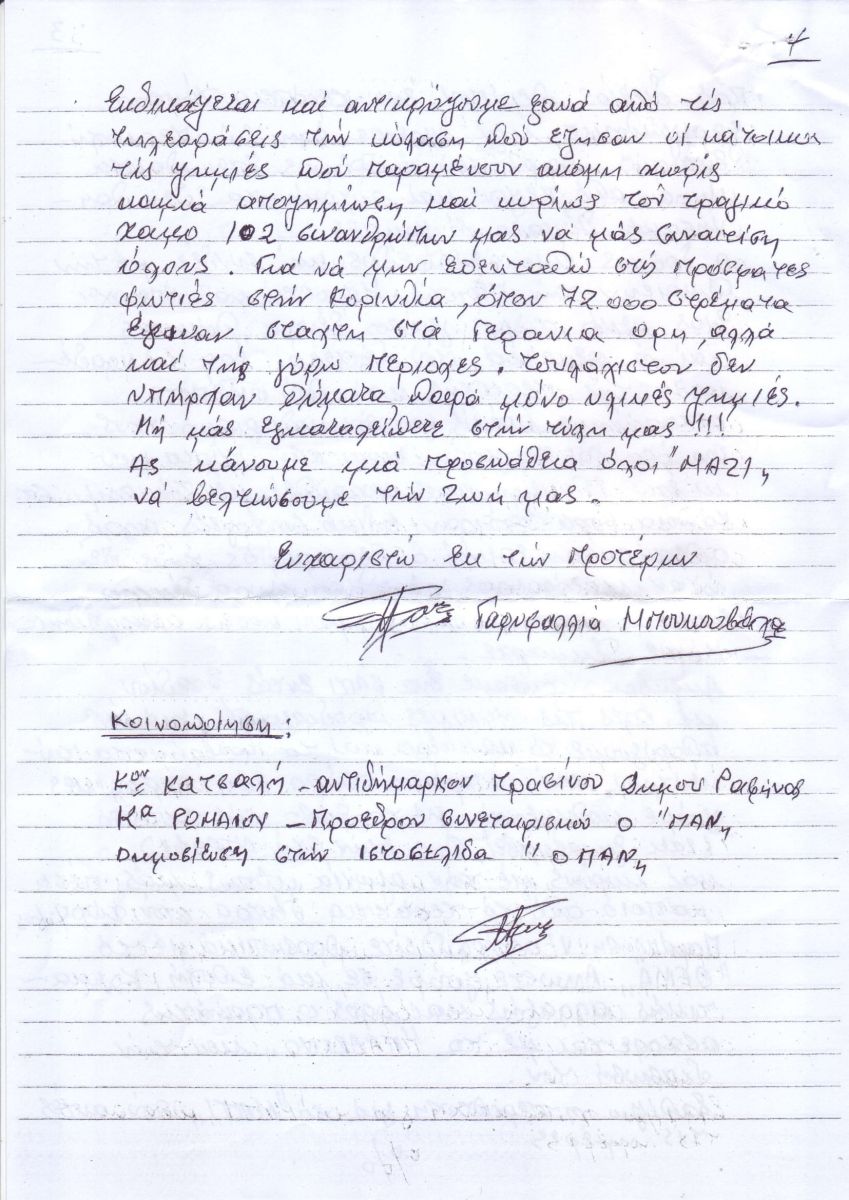 4
Εκδικάζεται και αντικρύζουμε ξανά από τις
τηλεοράσεις την κόλαση πού έζησαν οι κάτοικοι
τις ζημιές πού παραμένουν ακόμη χωρίς
καμμιά αποζημίωση και κυρίως τον τραγικό
χαμο 102 συνανθρώπων μας νά μάς συναιτίση
όλους. Γιά νά μην επεκταθώ στις πρόσφατες
φωτιές στην Κορινθία, όπου 72000 στρέματα
έγιναν στάχτη στά Γεράνια όρη, αλλά
και της γύρω περιοχες. Τουλάχιστον δεν
υπήρξαν θύματα, παρά μόνο υλικές ζημιές.
Μή μάς εγκαταλείπετε στην τύχη μας !!!
Ας κάνουμε μιά προσπάθεια όλοι "ΜΑΖΙ"
νά βελτιώσουμε την ζωή μας.
Ευχαριστώ εκ των προτέρων
Γαρυφαλλιά Μπουκουβάλα
Κοινοποίηση:
Κον Κατσαλή - αντιδήμαρχον πρασίνου Δήμου Ραφήνας
Κα ΡΩΜΑΝΟΥ - Πρόεδρον συνεταιρισμού ο "ΠΑΝ"
Δημοσίευση στην ιστοσελίδα "Ο ΠΑΝ"